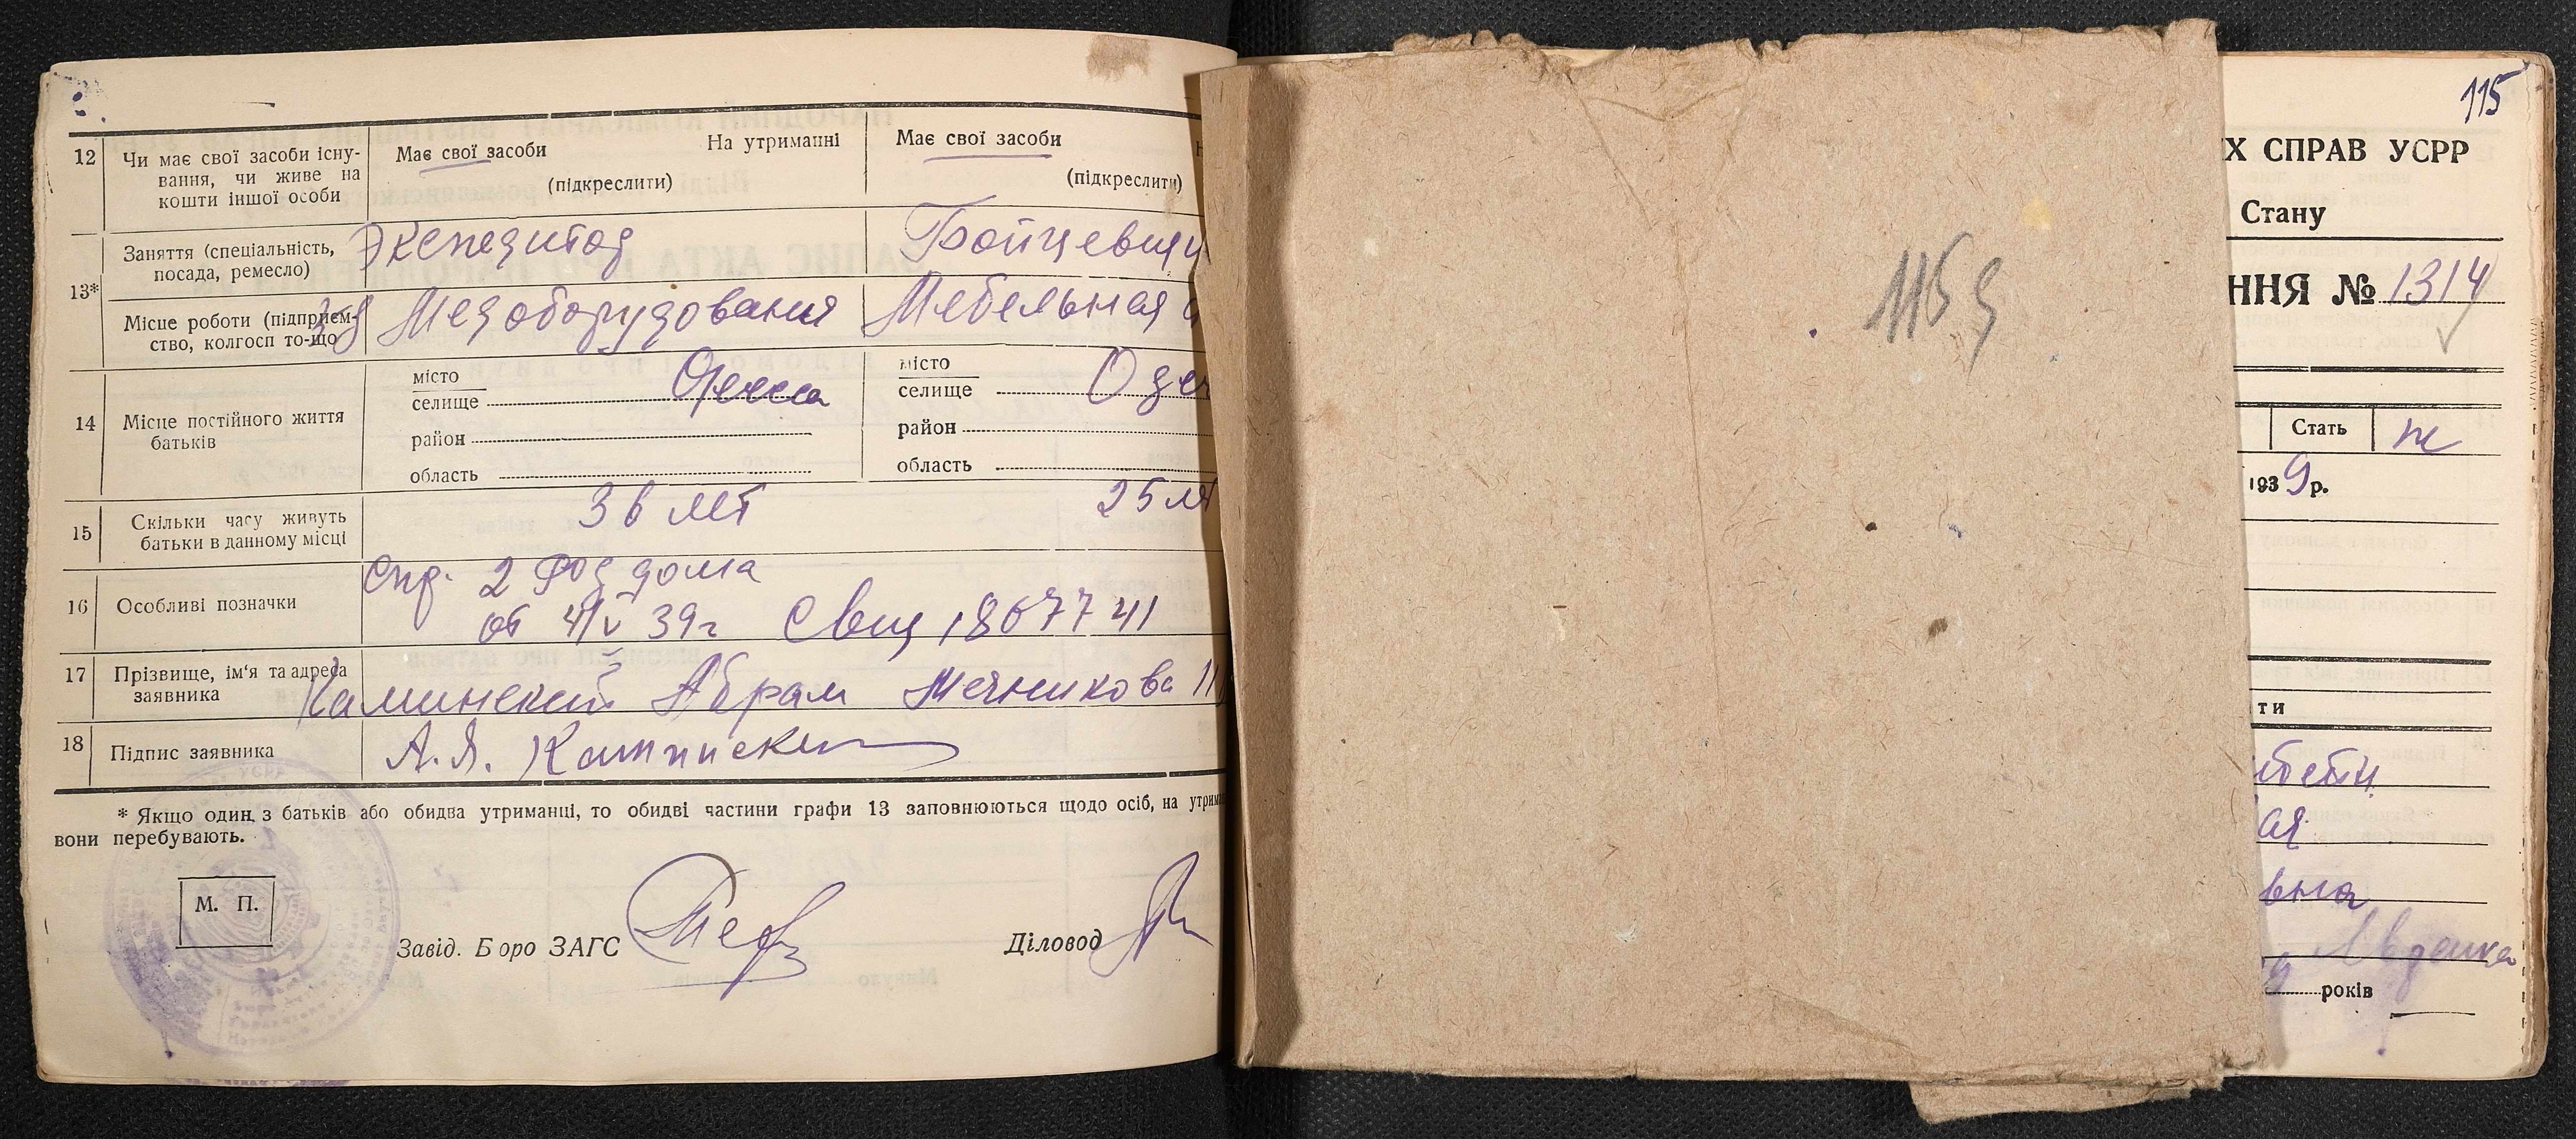 12
Чи має свої засоби існу-
вання, чи живе на
кошти іншої особи
Має свої засоби На утриманні
(підкреслити)
Має свої засоби
(підкреслити)
13*
Заняття (спеціальність,
посада, ремесло)
Экспедитор
Місце роботи (підприєм-
ство, колгосп то-що
Медоборудования
Мебельная
14
Місце постійного життя
батьків
місто
селище Одесса
район
область
місто
селище Одес
район
область
15
Скільки часу живуть
батьки в данному місці
36 лет
25 лет
16
Особливі позначки
Спр. 2 Род дома
от 4/V 39г
17
Прізвище, ім'я та адреса
заявника
Каминский Абрам Мечникова 11
18
Підпис заявника
А. Я. Каминский
* Якщо один з батьків або обидва утриманці, то обидві частини графи 13 заповнюються щодо осіб, на утрим
вони перебувають.
М. П.
Завід. Бюро ЗАГС
Діловод
115 з
115
Х СПРАВ УСРР
Стану
ННЯ № 1314
Стать ж
1939 р.
ти
ая
вна
років